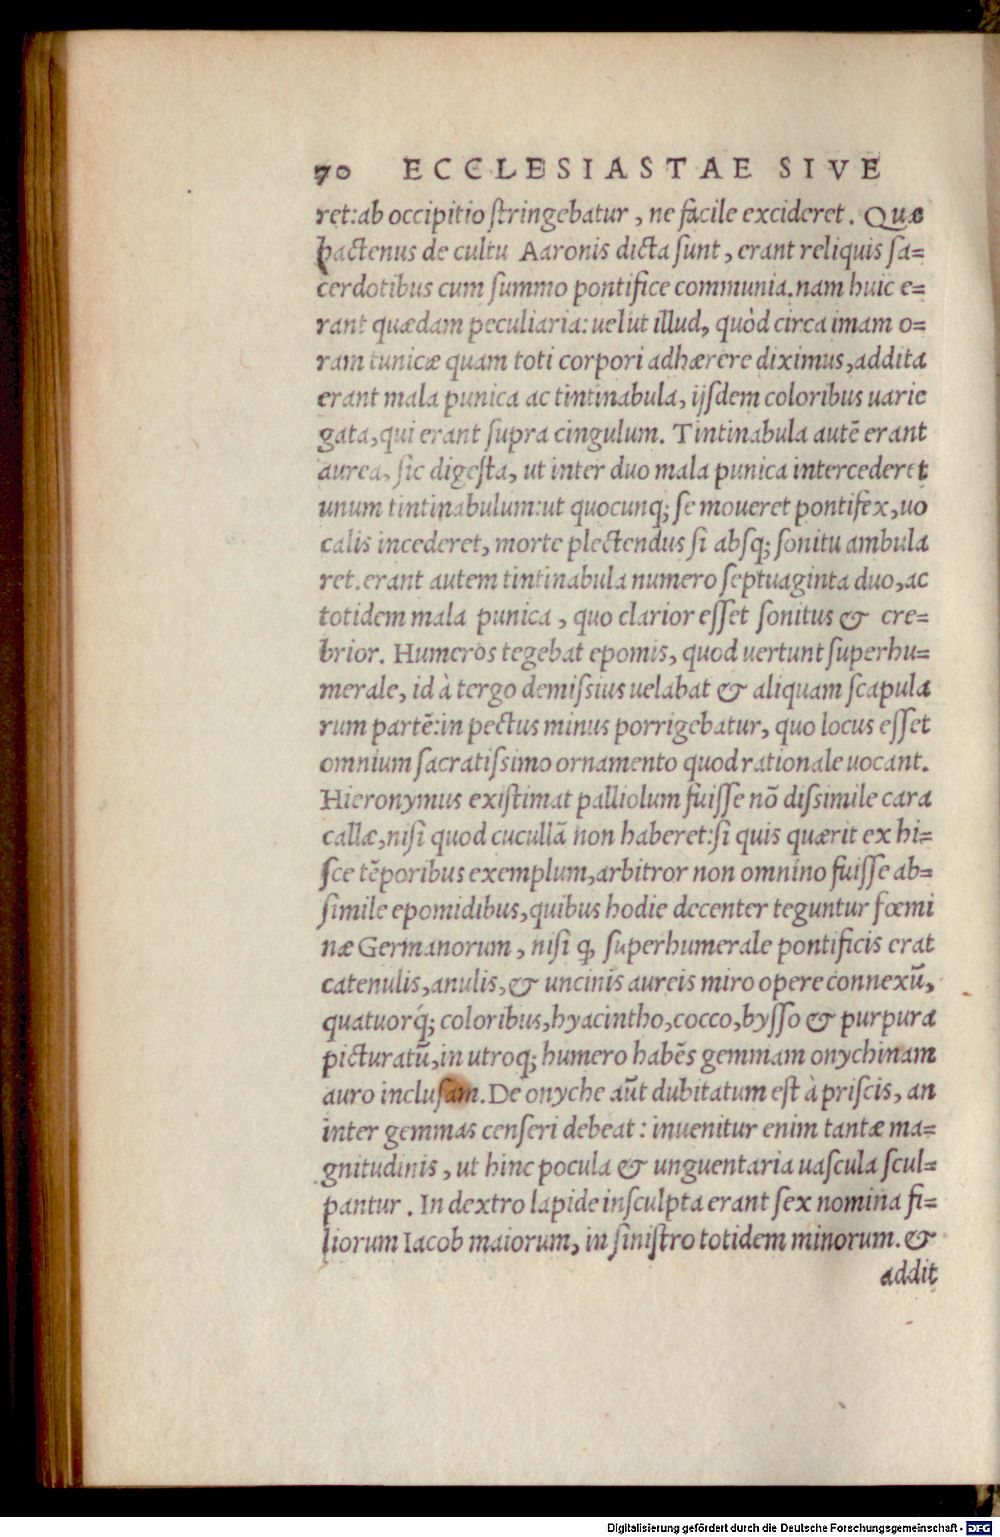 70 ECCLESIASTAE SIVE
ret:ab occipitio ſtringebatur, ne facile excideret. Quæ
hactenus de cultu Aaronis dicta ſunt, erant reliquis ſa=
cerdotibus cum ſummo pontifice communia.nam huic e=
rant quædam peculiaria: uelut illud, quòd circa imam o=
ram tunicæ quam toti corpori adhærere diximus,addita
erant mala punica ac tintinabula, ijſdem coloribus uarie
gata,qui erant ſupra cingulum. Tintinabula autẽ erant
aurea, ſic digeſta, ut inter duo mala punica intercederet
unum tintinabulum:ut quocunq; ſe moueret pontifex,uo
calis incederet, morte plectendus ſi abſq; ſonitu ambula
ret.erant autem tintinabula numero ſeptuaginta duo,ac
totidem mala punica, quo clarior eſſet ſonitus & cre=
brior. Humeros tegebat epomis, quod uertunt ſuperhu=
merale, id à tergo demiſsius uelabat & aliquam ſcapula
rum partẽ:in pectus minus porrigebatur, quo locus eſſet
omnium ſacratiſsimo ornamento quod rationale uocant.
Hieronymus exiſtimat palliolum fuiſſe nõ diſsimile cara
callæ,niſi quod cucullã non haberet:ſi quis quærit ex hi=
ſce tẽporibus exemplum,arbitror non omnino fuiſſe ab=
ſimile epomidibus,quibus hodie decenter teguntur fœmi
næ Germanorum, niſi ꝙ ſuperhumerale pontificis erat
catenulis,anulis,& uncinis aureis miro opere connexũ,
quatuorq́; coloribus,hyacintho,cocco,byſſo & purpura
picturatũ,in utroq; humero habẽs gemmam onychinam
auro incluſam. De onyche aũt dubitatum eſt à priſcis, an
inter gemmas cenſeri debeat: inuenitur enim tantæ ma=
gnitudinis, ut hinc pocula & unguentaria uaſcula ſcul=
pantur. In dextro lapide inſculpta erant ſex nomina fi=
liorum Iacob maiorum, in ſiniſtro totidem minorum. &
addit
Digitalisierung gefördert durch die Deutsche Forschungsgemeinschaft - DFG